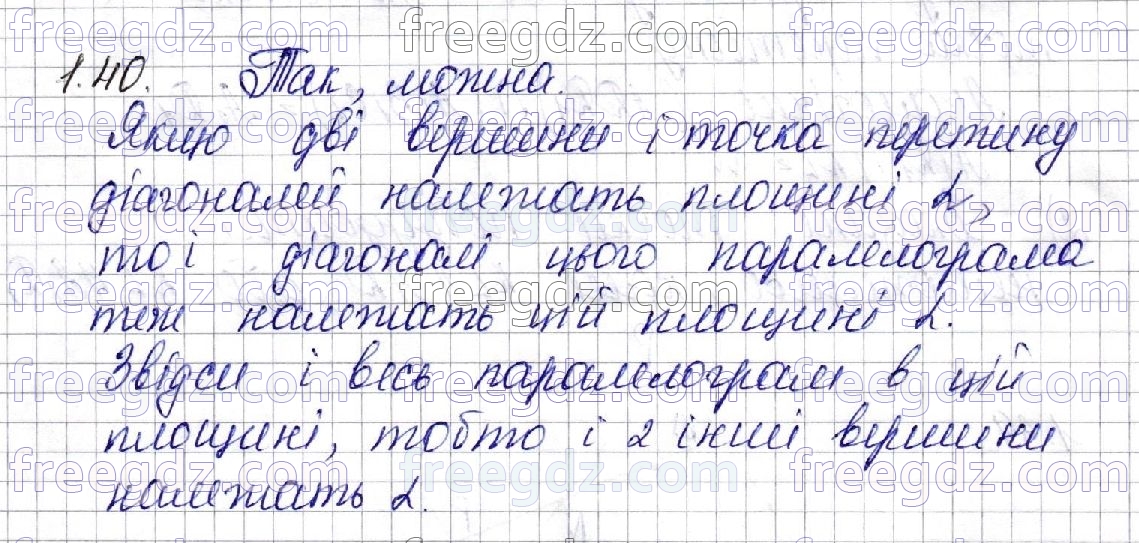 1.40. Так, можна.
Якщо дві вершини і точка перетину
діагоналей належать площині α,
то і діагоналі цього паралелограма
теж належать цій площині α.
Звідси і весь паралелограм в цій
площині, тобто і 2 інші вершини
належать α.
freegdz.com